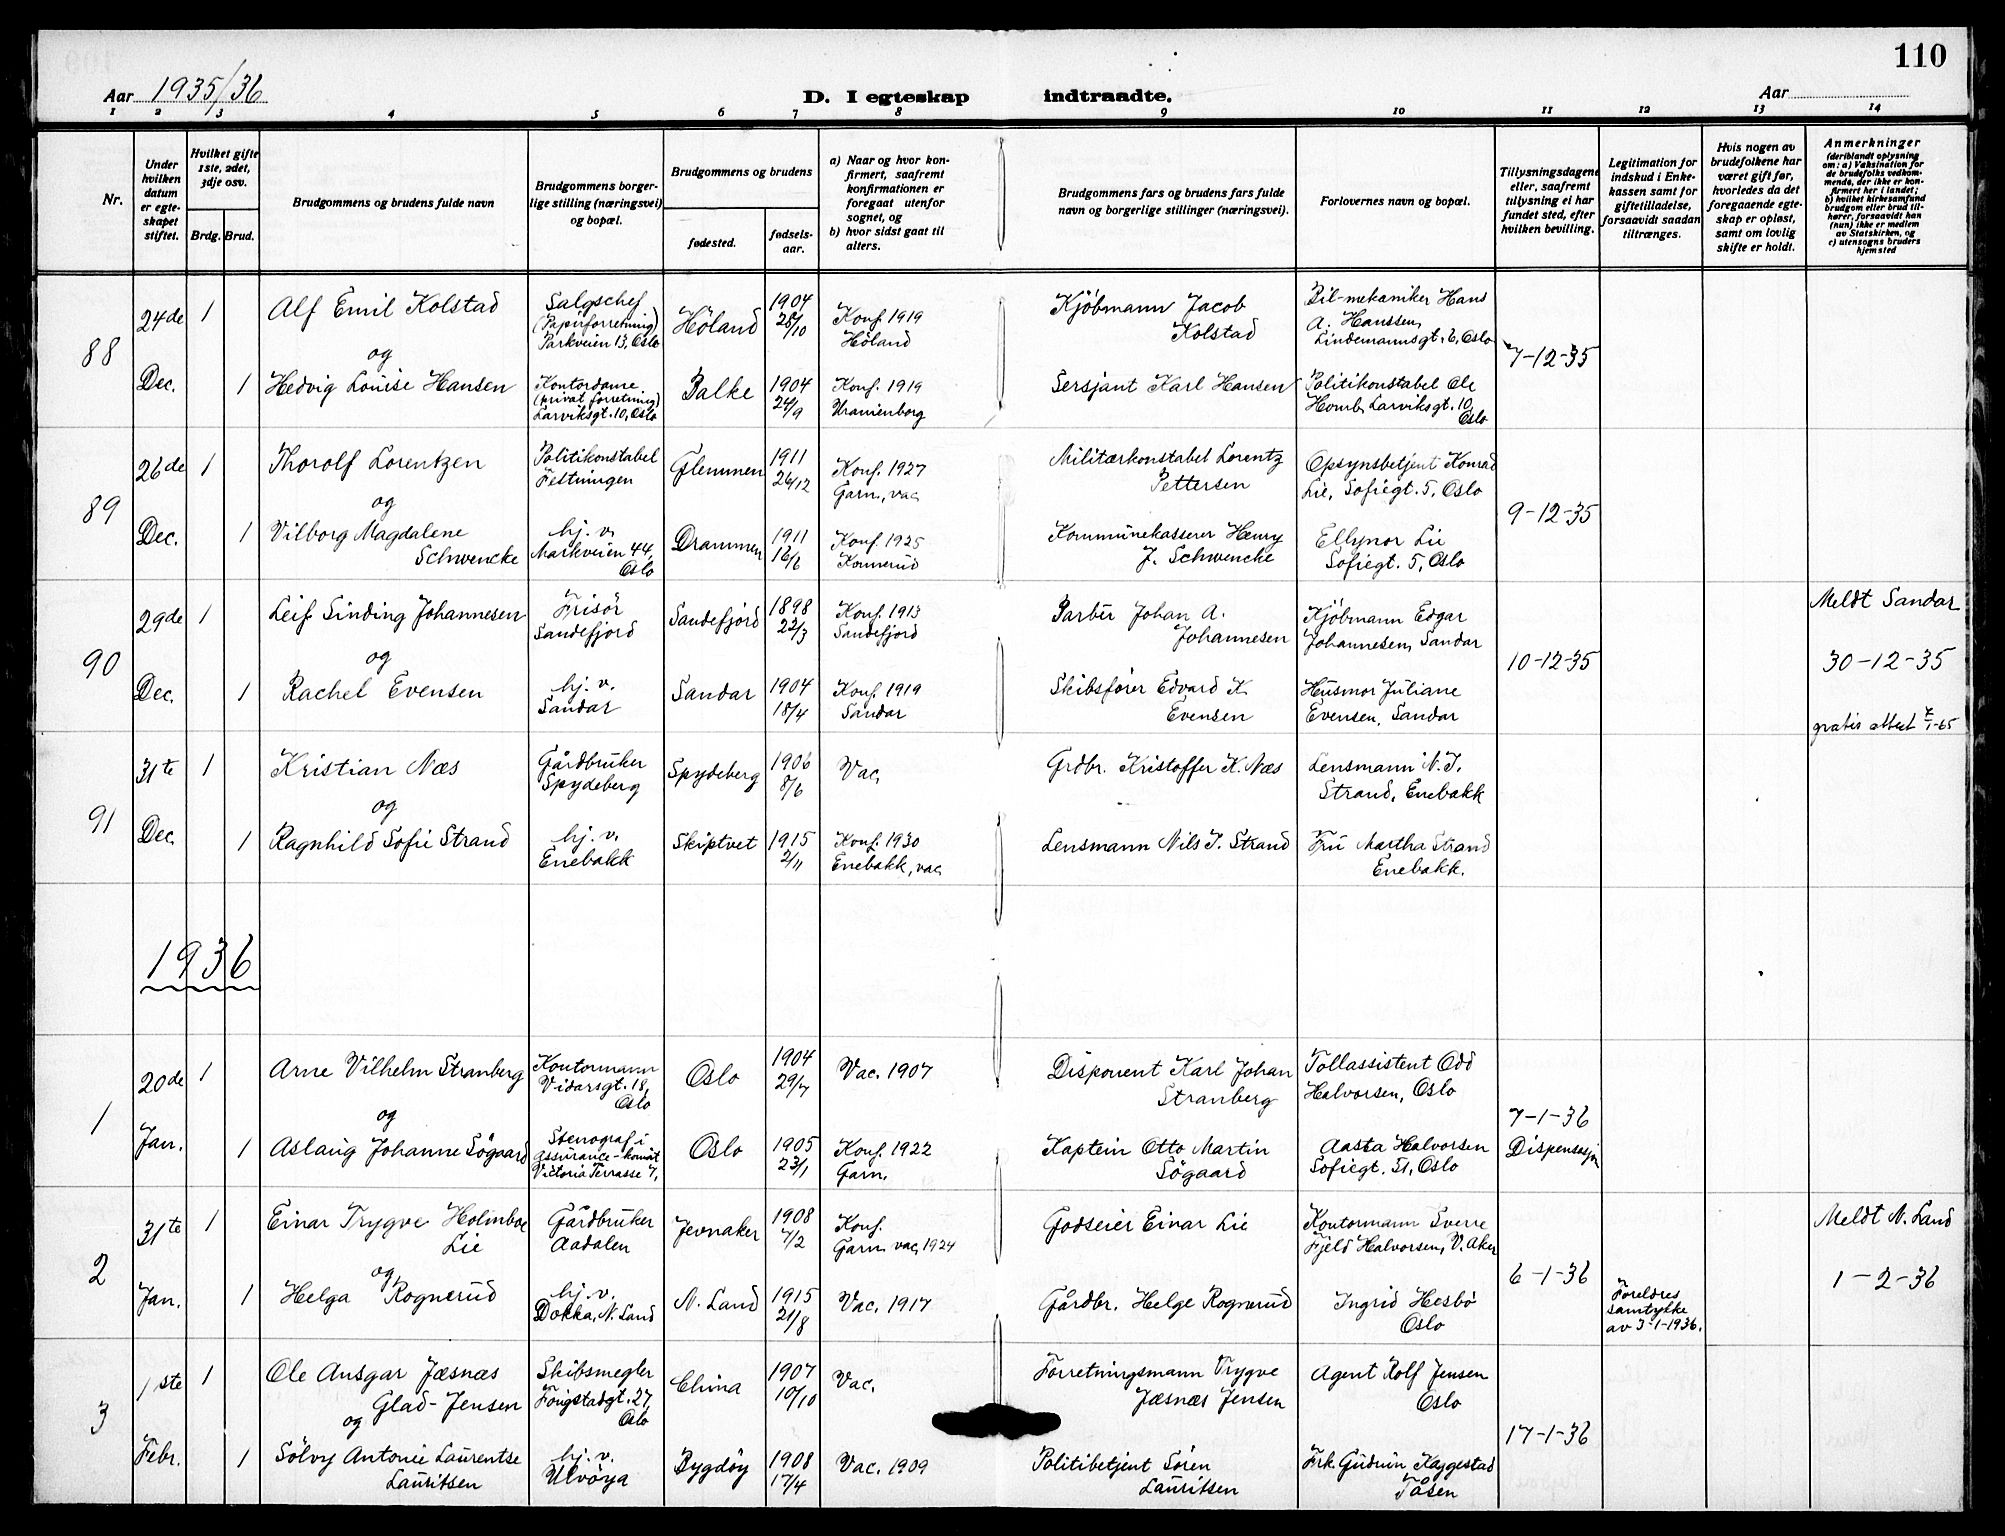 110
Aar 1935/36
D. I egteskap indtraadte.
Aar
1 2 3 4 5 6 7 8 9 10 11 12 13 14
Nr.
Under hvilken datum er egte-skapet stiftet.
Hvilket gifte 1ste, 2det, 3dje osv.
Brdg. Brud.
Brudgommens og brudens fulde navn
Brudgommens borger-lige stilling (næringsvei) og bopæl.
Brudgommens og brudens
fødested.
fødsels-aar.
a) Naar og hvor kon-firmert, saafremt konfirmationen er foregaat utenfor sognet, og
b) hvor sidst gaat til alters.
Brudgommens fars og brudens fars fulde navn og borgerlige stillinger (næringsvei).
Forlovernes navn og bopæl.
Tillysningsdagene eller, saafremt tillysning ei har fundet sted, efter hvilken bevilling.
Legitimation for indskud i Enke-kassen samt for giftetilladelse, forsaavidt saadan tiltrænges.
Hvis nogen av brudefolkene har været gift før, hvorledes da det foregaaende egte-skap er opløst, samt om lovlig skifte er holdt.
Anmerkninger
(deriblandt oplysning om: a) Vaksination for de brudefolks vedkom-mende, der ikke er kon-firmert her i landet; b) hvilket kirkesamfund brudgom eller brud til-hører, forsaavidt han (hun) ikke er medlem av Statskirken, og c) utensogns bruders hjemsted
88
24de Dec.
1
Alf Emil Kolstad
Salgschef (Papirforretning) Parkveien 13, Oslo
Höland
1904 28/10
Konf. 1919 Höland
Kjöbmann Jacob Kolstad
Bil-mekaniker Hans A. Hanssen, Lindemannsgt. 6, Oslo
og
1
Hedvig Louise Hansen
Kontordame (privat forretning) Larviksgt. 10, Oslo
Balke
1904 24/9
Konf. 1919 Uranienborg
Sersjant Karl Hansen
Politikonstabel Ole Homb, Larviksgt. 10, Oslo
7-12-35
89
26de Dec.
1
Thorolf Lorentzen
Politikonstabel Festningen
Glemmen
1911 26/12
Konf. 1927 Garn, vac
Militærkonstabel Lorentz Pettersen
Opsynsbetjent Konrad Lie, Sofiegt. 5, Oslo
og
1
Vilborg Magdalene Schwencke
hj. v. Markveien 44, Oslo
Drammen
1911 16/6
Konf. 1925 Konnerud
Kommunekasserer Henry J. Schwencke
Ellynor Lie Sofiegt. 5, Oslo
9-12-35
90
29de Dec.
1
Leif Sinding Johannesen
Frisör Sandefjord
Sandefjord
1898 22/3
Konf. 1913 Sandefjord
Barber Johan A. Johannesen
Kjöbmann Edgar Johannesen, Sandar
og
1
Rachel Evensen
hj. v. Sandar
Sandar
1904 18/4
Konf. 1919 Sandar
Skibsförer Edvard K. Evensen
Husmor Juliane Evensen, Sandar
10-12-35
Meldt Sandar
30-12-35
gratis attest 7/1-65
91
31te Dec.
1
Kristian Næs
Gårdbruker Spydeberg
Spydeberg
1906 8/6
Vac.
Grdbr. Kristoffer K. Næs
Lensmann N. J. Strand, Enebakk
og
1
Ragnhild Sofie Strand
hj. v. Enebakk
Skiptvet
1915 2/11
Konf. 1930 Enebakk, vac.
Lensmann Nils J. Strand
Fru Martha Strand Enebakk.
1936
1
20de Jan.
1
Arne Vilhelm Stranberg
Kontormann Vidarsgt. 18, Oslo
Oslo
1904 29/7
Vac. 1907
Disponent Karl Johan Stranberg
Tollassistent Odd Halvorsen, Oslo
og
1
Aslaug Johanne Sögaard
Stenograf i Assurance-komit Victoria Terrasse 7,
Oslo
1905 23/1
Konf. 1922 Garn.
Kaptein Otto Martin Sögaard
Aasta Halvorsen Sofiegt. 51, Oslo
7-1-36 Dispensasjon
2
31te Jan.
1
Einar Trygve Holmboe Lie
Gårdbruker Aadalen
Jevnaker
1908 7/2
Konf. Garn. vac. 1924
Godseier Einar Lie
Kontormann Sverre Fjeld Halvorsen, V. Aker
og
1
Helga Rognerud
hj. v. Dokka, N. Land
N. Land
1915 21/8
Vac. 1917
Gårdbr. Helge Rognerud
Ingrid Hesbö Oslo
6-1-36
Foreldres samtykke av 3-1-1936.
Meldt N. Land
1-2-36
3
1ste Febr.
1
Ole Ansgar Jæsnæs Glad-Jensen
Skibsmegler Fougstadgt. 27, Oslo
China
1907 10/10
Vac.
Forretningsmann Trygve Jæsnæs Jensen
Agent Rolf Jensen Oslo
og
1
Sölvy Antonie Laurentse Lauritsen
hj. v. Ulvöya
Bygdöy
1908 17/4
Vac. 1909
Politibetjent Sören Lauritsen
Frk. Gudrun Kaggestad Tåsen
17-1-36